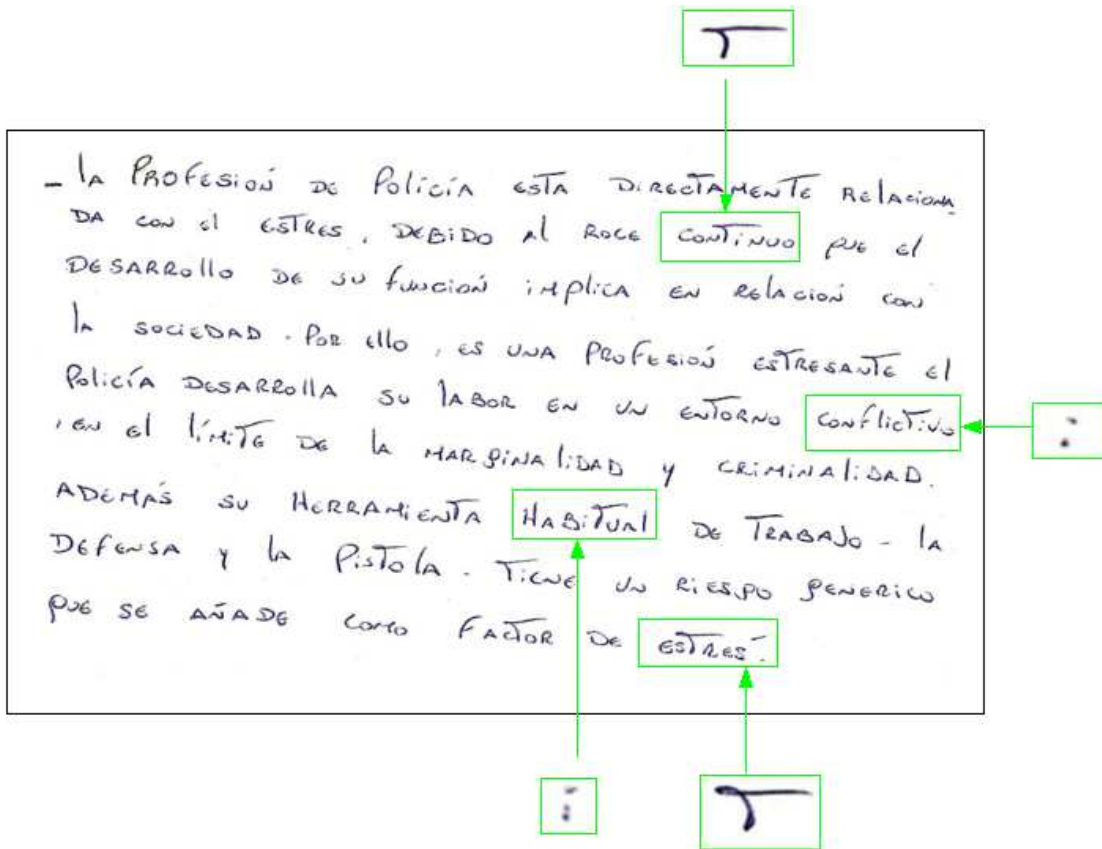 - LA PROFESIÓN DE POLICÍA ESTA DIRECTAMENTE RELACIONA
DA CON El ESTRES, DEBIDO Al ROCE CONTINUO QUE El
DESARROllO DE SU FUNCIÓN iMPliCA EN RELACIÓN CON
lA SOCiEDAD. POR EllO, ES UNA PROFESIÓN ESTRESANTE El
POliCÍA DESARROllA SU lABOR EN UN ENTORNO CONFliCTiVO
, EN El lÍMiTE DE lA MARGINAliDAD Y CRiMiNAliDAD.
ADEMÁS SU HERRAMiENTA HABiTUAl DE TRABAJO - lA
DEFENSA Y lA PiSTOlA - TiENE UN RiESGO GENERiCO
QUE SE AÑADE COMO FACTOR DE ESTRÉS.